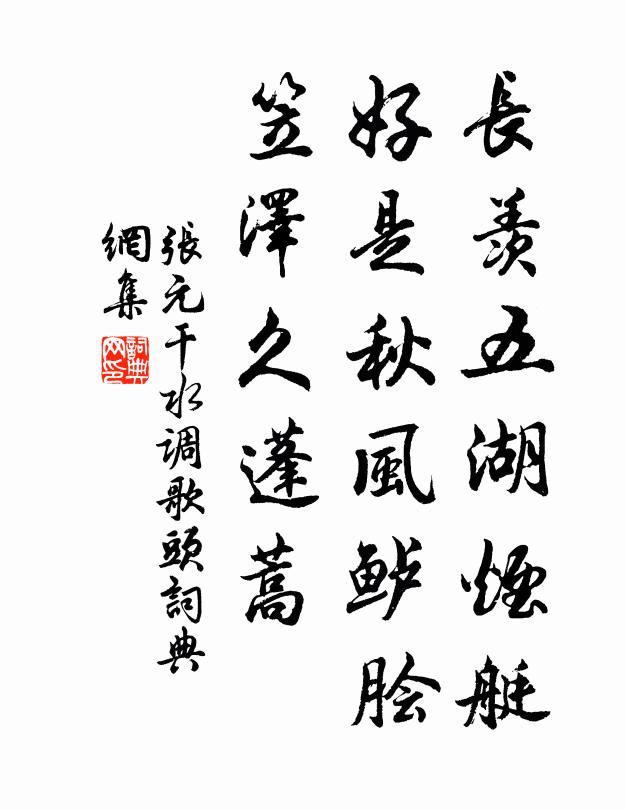 長羨五湖煙艇
好是秋風鲈脍
笠澤久蓬蒿
張元干水调歌頭詞典
網集
詞典网印